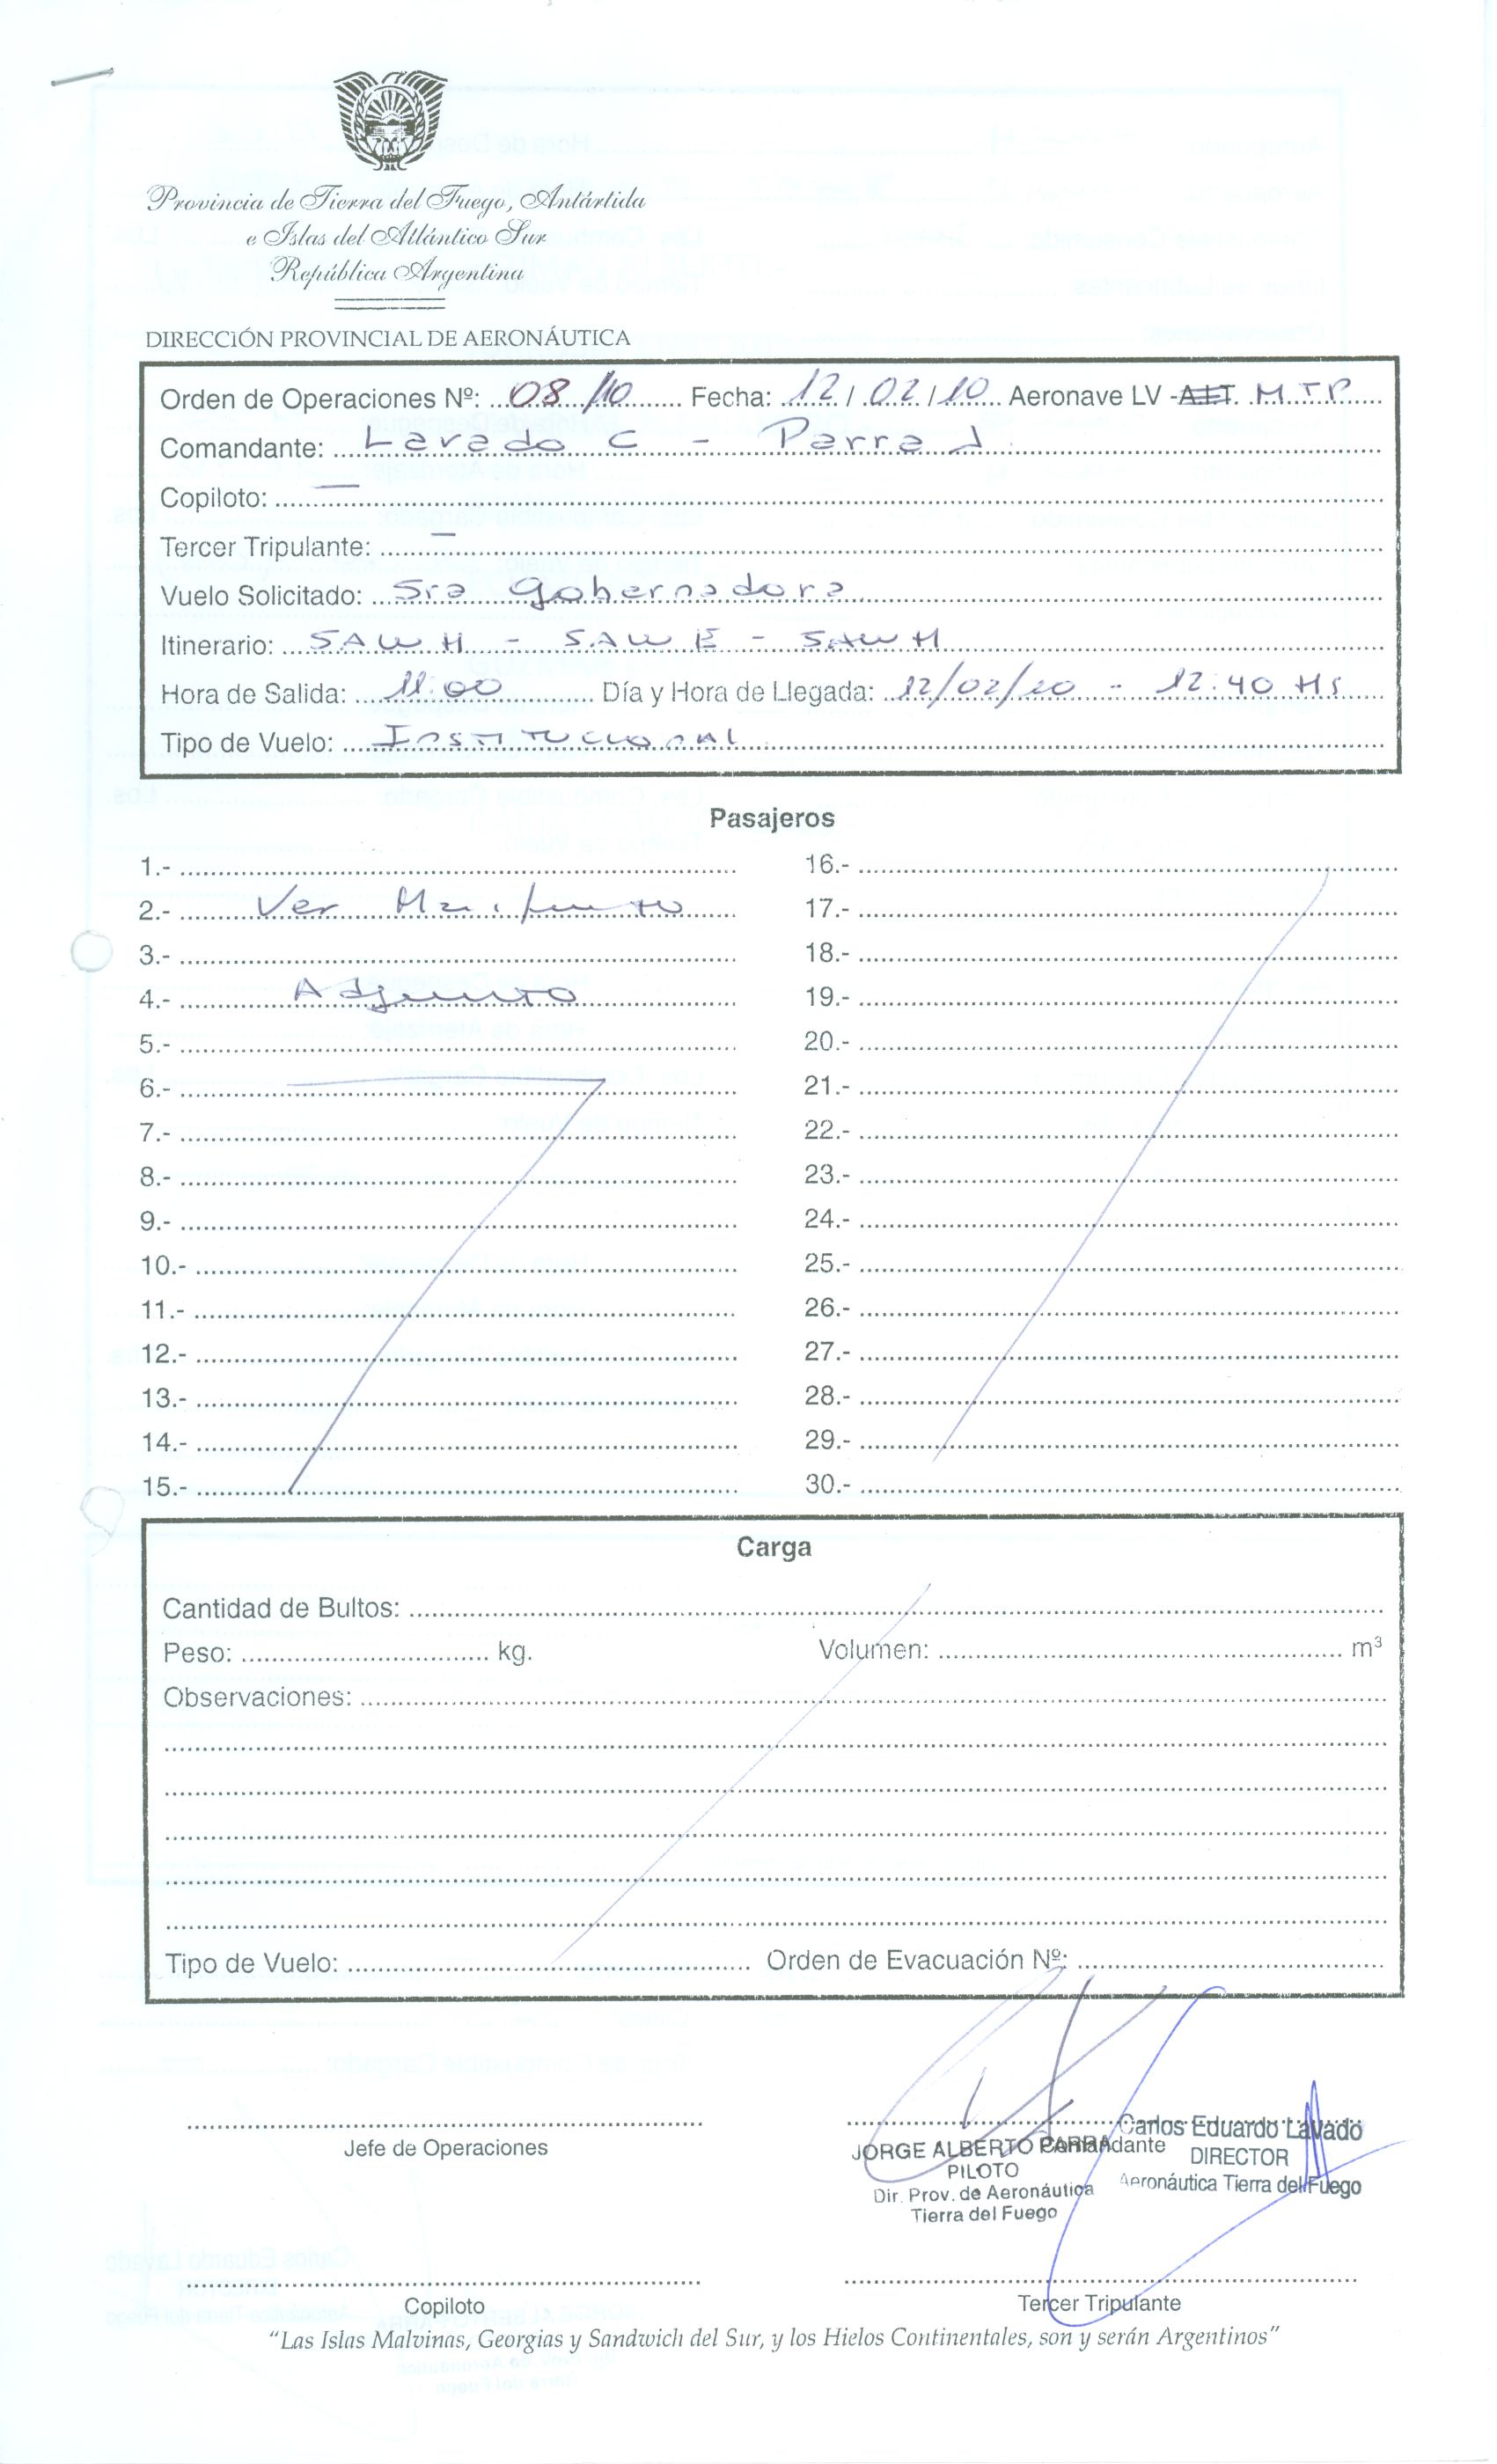 Provincia de Tierra del Fuego, Antártida
e Islas del Atlántico Sur
República Argentina
DIRECCIÓN PROVINCIAL DE AERONÁUTICA
Orden de Operaciones Nº: 08/10 Fecha: 12/02/10 Aeronave LV - AET. MTP
Comandante: Lavado C - Parra J.
Copiloto: —
Tercer Tripulante: —
Vuelo Solicitado: Sra Gobernadora
Itinerario: SAWH - SAWE - SAWH
Hora de Salida: 11:00 Día y Hora de Llegada: 12/02/10 - 12:40 Hs
Tipo de Vuelo: Institucional
Pasajeros
1.-
2.- Ver Manifiesto
3.-
4.- Adjunto
5.-
6.-
7.-
8.-
9.-
10.-
11.-
12.-
13.-
14.-
15.-
16.-
17.-
18.-
19.-
20.-
21.-
22.-
23.-
24.-
25.-
26.-
27.-
28.-
29.-
30.-
Carga
Cantidad de Bultos:
Peso: kg. Volumen: m³
Observaciones:
Tipo de Vuelo: Orden de Evacuación Nº:
Jefe de Operaciones
Comandante
JORGE ALBERTO PARRA
PILOTO
Dir. Prov. de Aeronáutica
Tierra del Fuego
Carlos Eduardo Lavado
DIRECTOR
Aeronáutica Tierra del Fuego
Copiloto
Tercer Tripulante
“Las Islas Malvinas, Georgias y Sandwich del Sur, y los Hielos Continentales, son y serán Argentinos”